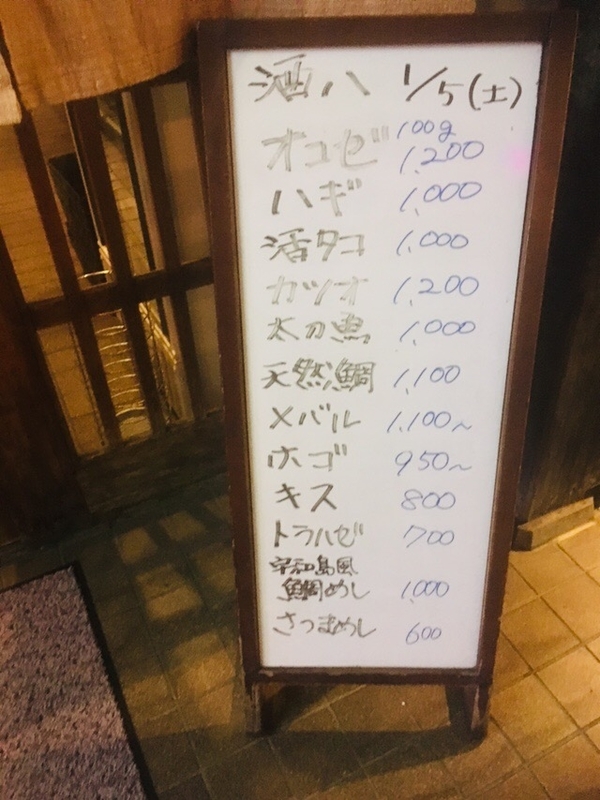 酒八 1/5(土)
100g
オコゼ 1,200
ハギ 1,000
活タコ 1,000
カツオ 1,200
太刀魚 1,000
天然鯛 1,100
メバル 1,100〜
ホゴ 950〜
キス 800
トラハゼ 700
宇和島風
鯛めし 1,000
さつまめし 600